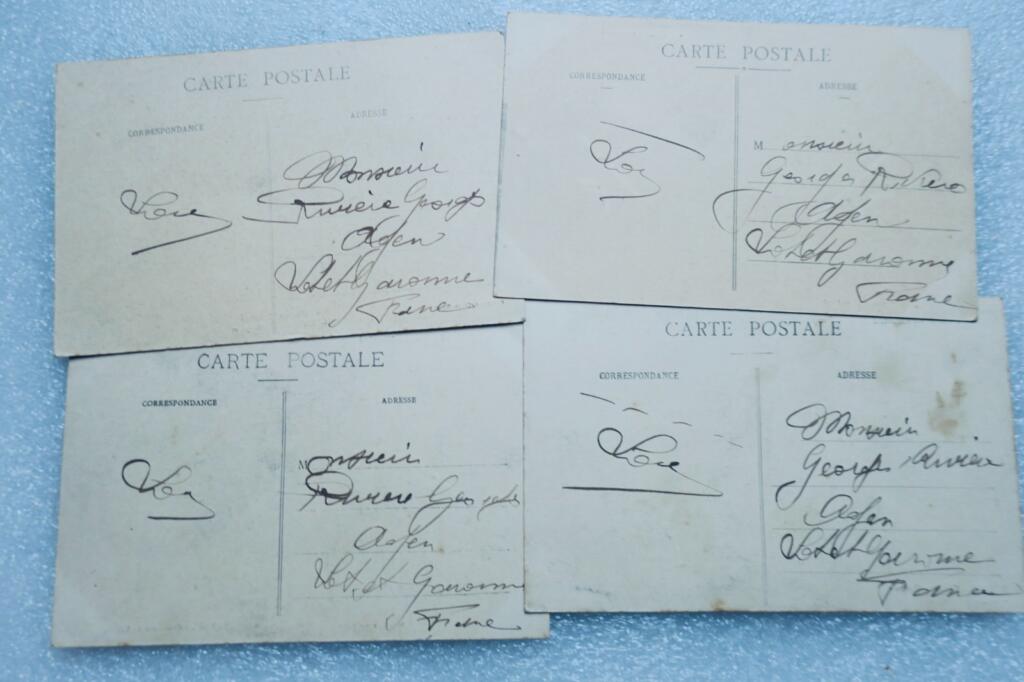 CARTE POSTALE
CORRESPONDANCE
ADRESSE
Monsieur
Rivière Georges
Agen
Lot et Garonne
France
CARTE POSTALE
CORRESPONDANCE
ADRESSE
Monsieur
Georges Rivière
Agen
Lot et Garonne
France
CARTE POSTALE
CORRESPONDANCE
ADRESSE
Monsieur
Riviere Georges
Agen
Lot et Garonne
France
CARTE POSTALE
CORRESPONDANCE
ADRESSE
Monsieur
Georges Riviere
Agen
Lot et Garonne
France